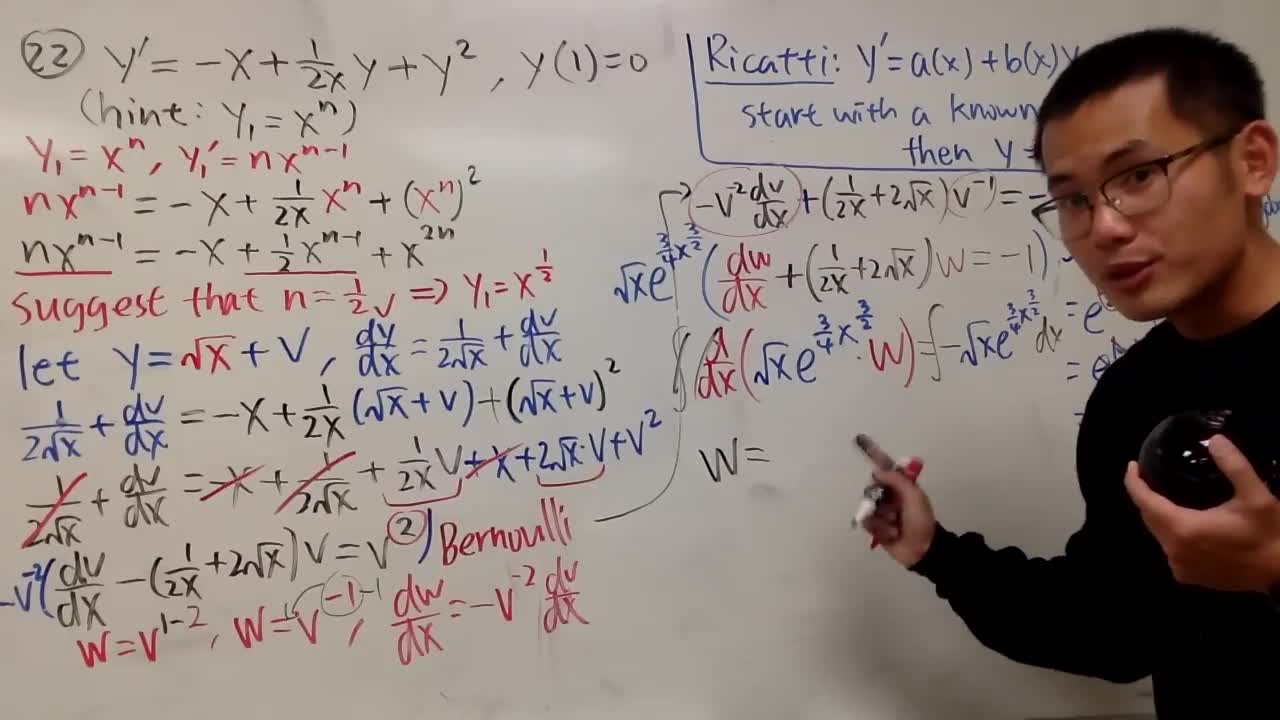 22 y' = -x + 1/(2x) y + y², y(1)=0
(hint: y₁ = xⁿ)
y₁ = xⁿ, y₁' = nxⁿ⁻¹
nxⁿ⁻¹ = -x + 1/(2x) xⁿ + (xⁿ)²
nxⁿ⁻¹ = -x + 1/2 xⁿ⁻¹ + x²ⁿ
suggest that n = 1/2 ✓ ⇒ y₁ = x^(1/2)
let y = √x + v, dy/dx = 1/(2√x) + dv/dx
1/(2√x) + dv/dx = -x + 1/(2x) (√x + v) + (√x + v)²
1/(2√x) + dv/dx = -x + 1/(2√x) + 1/(2x) v + x + 2√x·v + v²
-v⁻²( dv/dx - (1/(2x) + 2√x) v = v² ) Bernoulli
w = v^(1-2), w = v⁻¹, dw/dx = -v⁻² dv/dx
Ricatti: y' = a(x) + b(x)y
start with a known
then y
-v⁻² dv/dx + (1/(2x) + 2√x) v⁻¹ = -
√x e^(3/4 x^(3/2)) ( dw/dx + (1/(2x) + 2√x) w = -1 )
∫ d/dx (√x e^(3/4 x^(3/2)) · w) = ∫ -√x e^(3/4 x^(3/2)) dx
= e
= e
w =